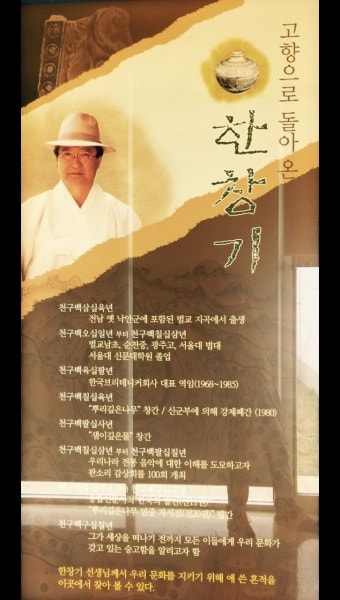 고향으로 돌아 온
한창기
천구백삼십육년
전남 옛 낙안군에 포함된 벌교 지곡에서 출생
천구백오십일년 부터 천구백칠십삼년
벌교남초, 순천중, 광주고, 서울대 법대
서울대 신문대학원 졸업
천구백육십팔년
한국브리태니커회사 대표 역임(1968~1985)
천구백칠십육년
"뿌리깊은나무" 창간 / 신군부에 의해 강제폐간 (1980)
천구백팔십사년
"샘이깊은물" 창간
천구백칠십삼년 부터 천구백팔십칠년
우리나라 전통 음악에 대한 이해를 도모하고자
판소리 감상회를 100회 개최
"뿌리깊은나무 민중 자서전(전20권)" 발간
천구백구십칠년
그가 세상을 떠나기 전까지 모든 이들에게 우리 문화가
갖고 있는 숭고함을 알리고자 함
한창기 선생님께서 우리 문화를 지키기 위해 애 쓴 흔적을
이곳에서 찾아 볼 수 있다.